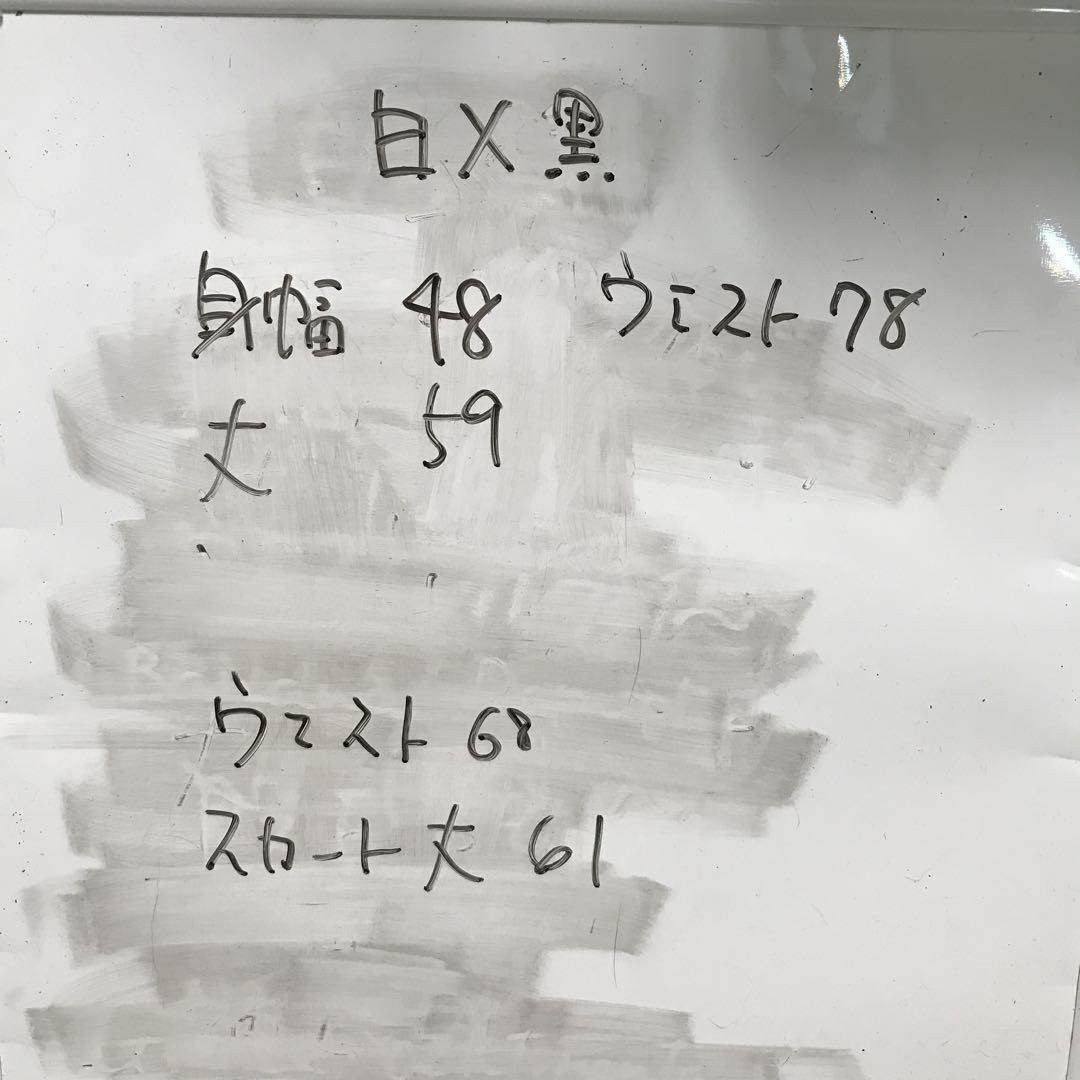 白×黒
身幅 48 ウエスト 78
丈 59
ウエスト 68
スカート丈 61